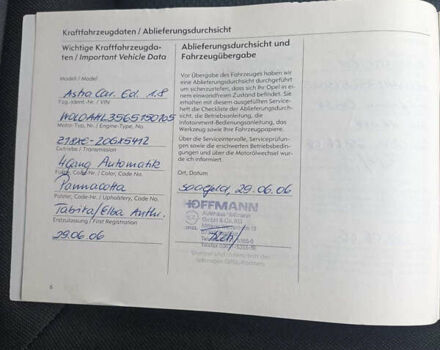 Kraftfahrzeugdaten / Ablieferungsdurchsicht
Wichtige Kraftfahrzeugda-
ten / Important Vehicle Data
Modell / Model
Astra Car. Ed. 1.8
Fzg.-Ident.-Nr. / VIN
Motor-Typ, Nr. / Engine-Type, No.
Z18XE-20GX5412
Getriebe / Transmission
4Gang Automatik
Farbe, Color-Nr. / Color, Code No.
Pannacotta
Polster, Color-Nr. / Upholstery, Code No.
Tabita/Elba Anthr.
Erstzulassung / First Registration
29.06.06
Ablieferungsdurchsicht und
Fahrzeugübergabe
Vor Übergabe des Fahrzeuges haben wir
eine Ablieferungsdurchsicht durchgeführt
um sicherzustellen, dass sich Ihr Opel in
einem einwandfreien Zustand befindet. Sie
erhalten mit diesem ausgefüllten Service-
heft die Checkliste der Ablieferungsdurch-
sicht, die Betriebsanleitung, die
Infotainment-Bedienungsanleitung, das
Werkzeug sowie Ihre Fahrzeugpapiere.
Über die Serviceintervalle, Serviceprüfun-
gen sowie die erschwerten Betriebsbedin-
gungen und über die Motorölwechsel wur-
de ich informiert.
Ort, Datum
Saalfeld, 29.06.06
HOFFMANN
Autohaus Hoffmann
GmbH & Co. KG
6